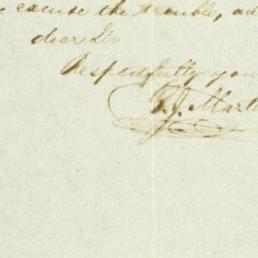 excuse the trouble, and
dear Sir
Respectfully you
J. Mart